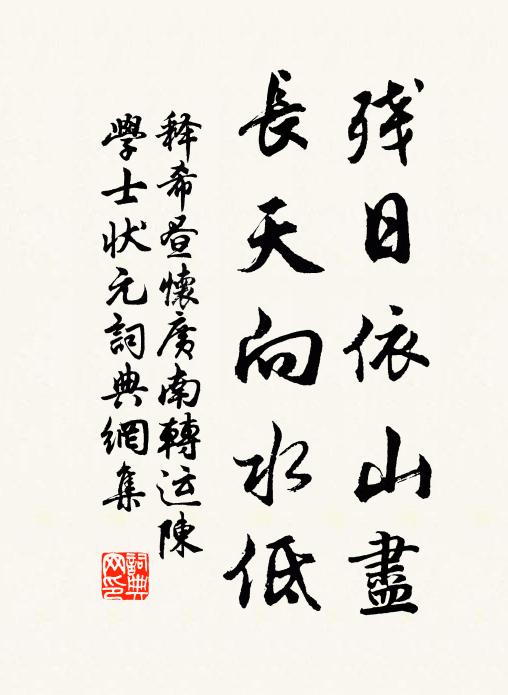 残日依山盡
長天向水低
释希昼懷廣南轉运陳
學士状元詞典網集
詞典
网印